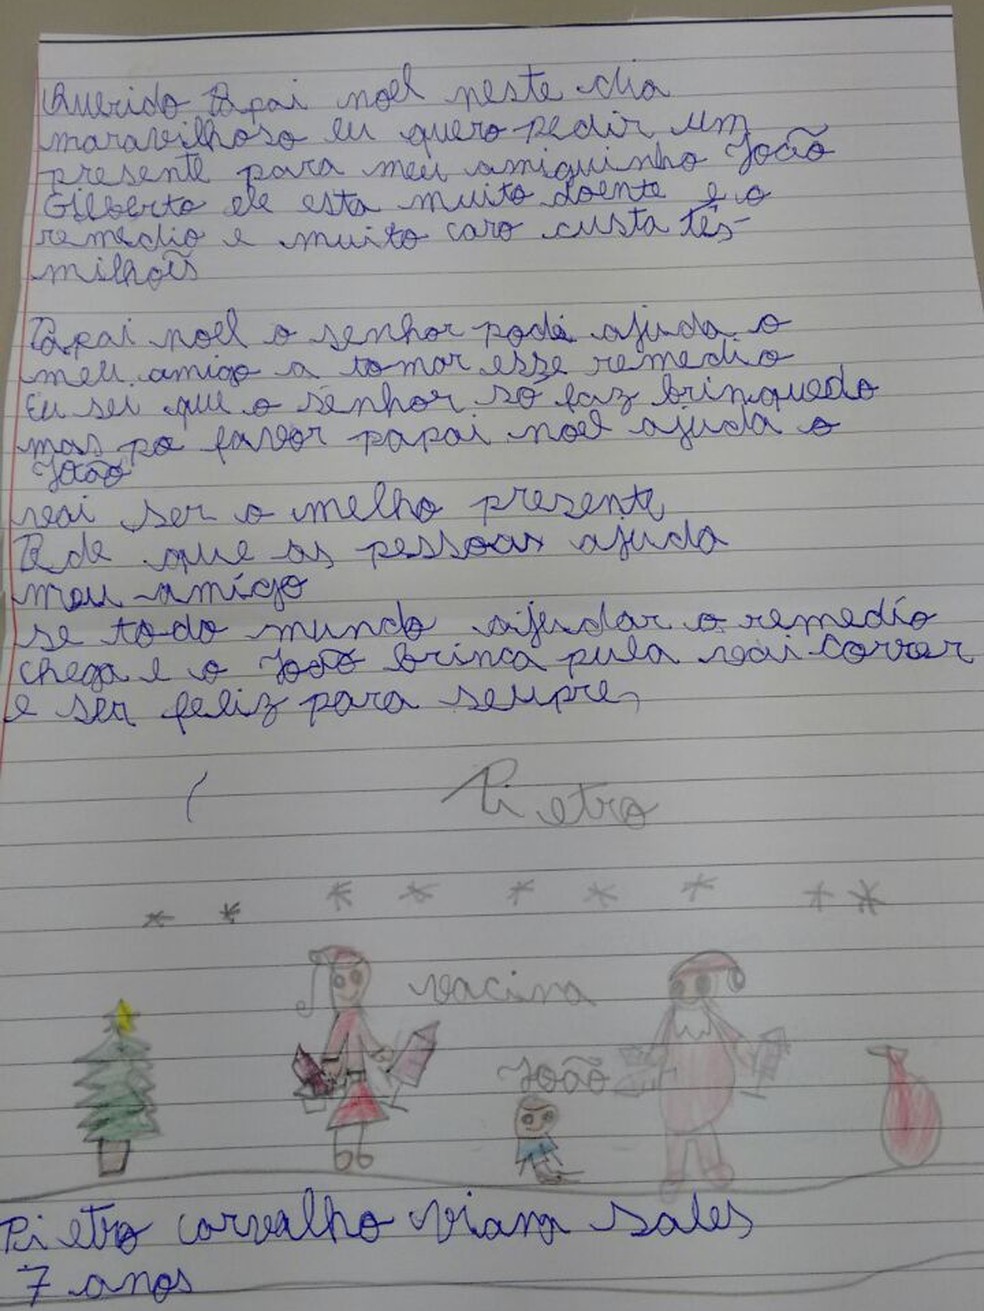 Querido Papai noel neste dia
maravilhoso eu quero pedir um
presente para meu amiguinho João
Gilberto ele esta muito doente e o
remedio e muito caro custa tês-
milhões
Papai noel o senhor pode ajuda o
meu amigo a tomar esse remedio
Eu sei que o senhor só faz brinquedo
mas po favor papai noel ajuda o
João
vai ser o melho presente
Pede que as pessoas ajuda
meu amigo
se todo mundo ajudar o remedio
chega e o João brinca pula vai correr
e ser feliz para sempre,
Pietro
vacina
João
Pietro carvalho viana sales
7 anos